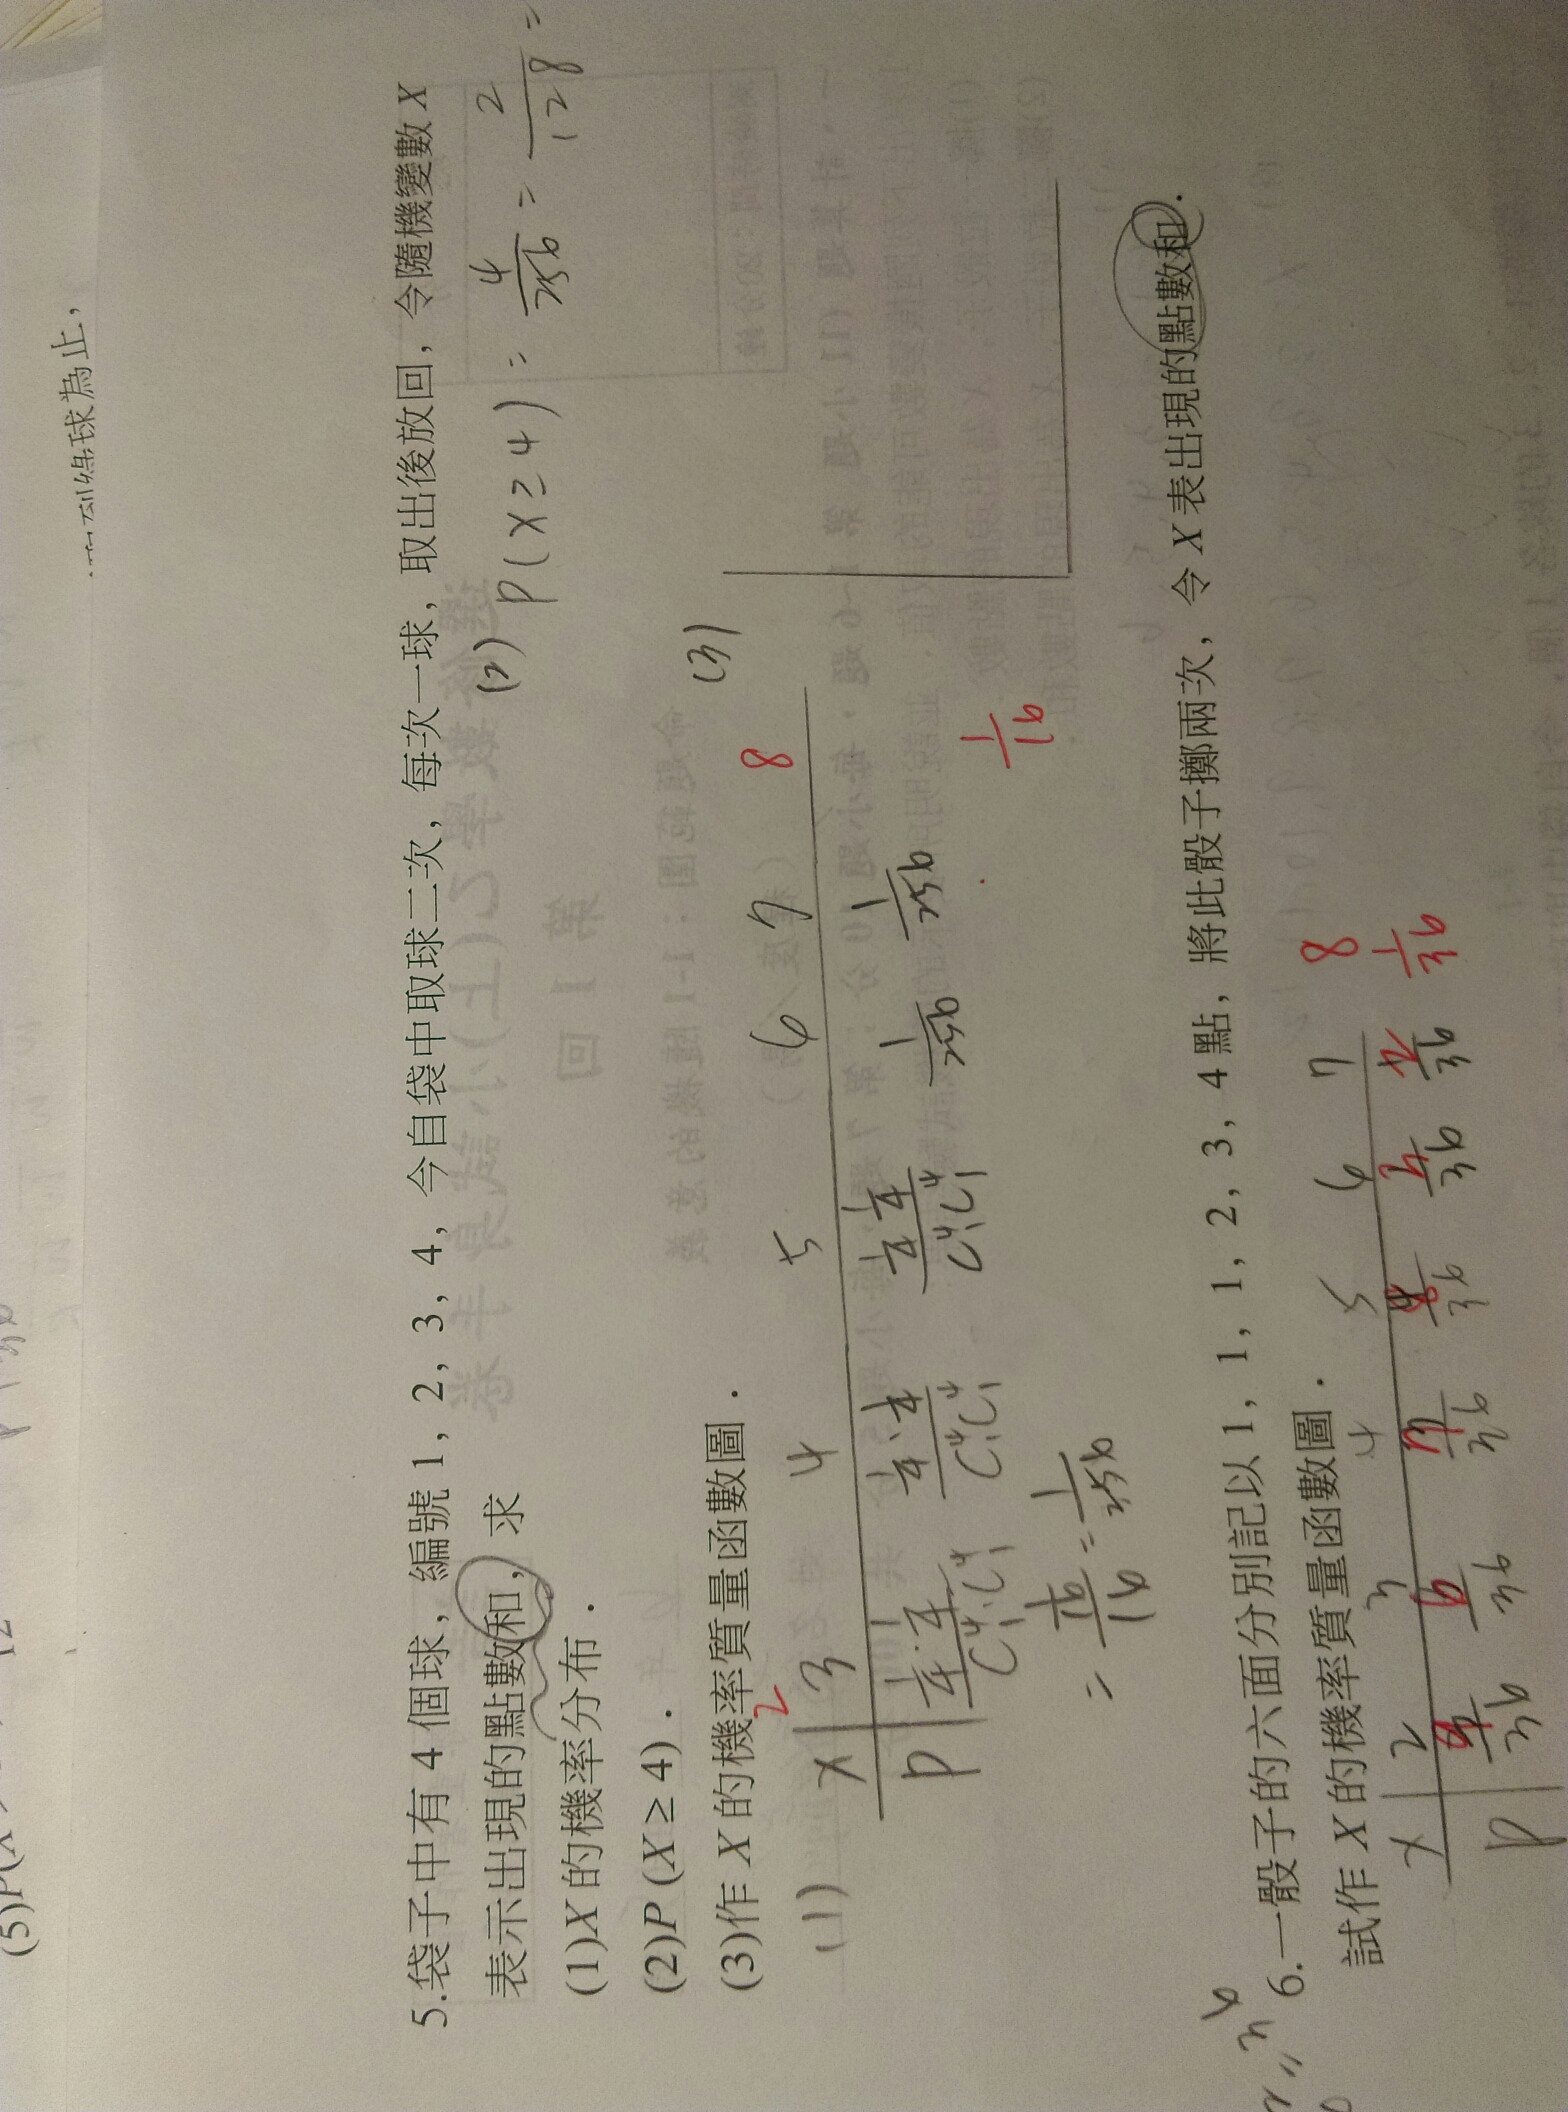 (5)P(X
取到綠球為止，
5.袋子中有 4 個球，編號 1，2，3，4，今自袋中取球二次，每次一球，取出後放回，令隨機變數 X
表示出現的點數和，求
(1)X 的機率分布．
(2)P (X ≥ 4)．
(3)作 X 的機率質量函數圖．
(2) P(X≥4) = 4/256 = 2/128 =
(3)
(1)
X 2 3 4 5 6 7 8
P 1/4·1/4/C⁴₁C⁴₁ 1/4·1/4/C⁴₁C⁴₁ 1/4 1/4/C⁴₁C⁴₁ 1/256 1/256 1/16
= 1/16/16 = 1/256
6.一骰子的六面分別記以 1，1，1，2，3，4 點，將此骰子擲兩次，令 X 表出現的點數和．
試作 X 的機率質量函數圖．
X 2 3 4 5 6 7 8
P 9/36 /36 /36 8/36 /36 2/36 1/36